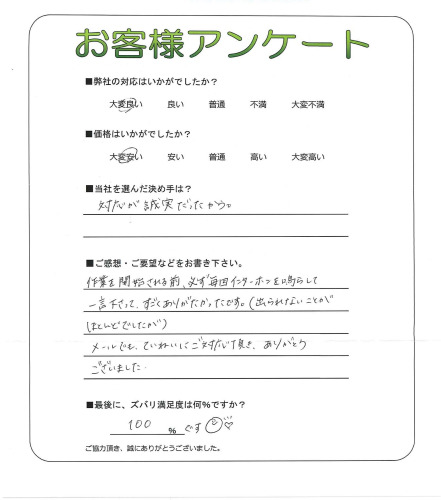 お客様アンケート
■弊社の対応はいかがでしたか?
大変良い 良い 普通 不満 大変不満
■価格はいかがでしたか?
大変安い 安い 普通 高い 大変高い
■当社を選んだ決め手は?
対応が誠実だったから。
■ご感想・ご要望などをお書き下さい。
作業を開始される前、必ず毎回インターホンを鳴らして
一言下さって、すごくありがたかったです。(出られないことが
ほとんどでしたが)
メールでも、ていねいにご対応頂き、ありがとう
ございました。
■最後に、ズバリ満足度は何%ですか?
100 % です
ご協力頂き、誠にありがとうございました。